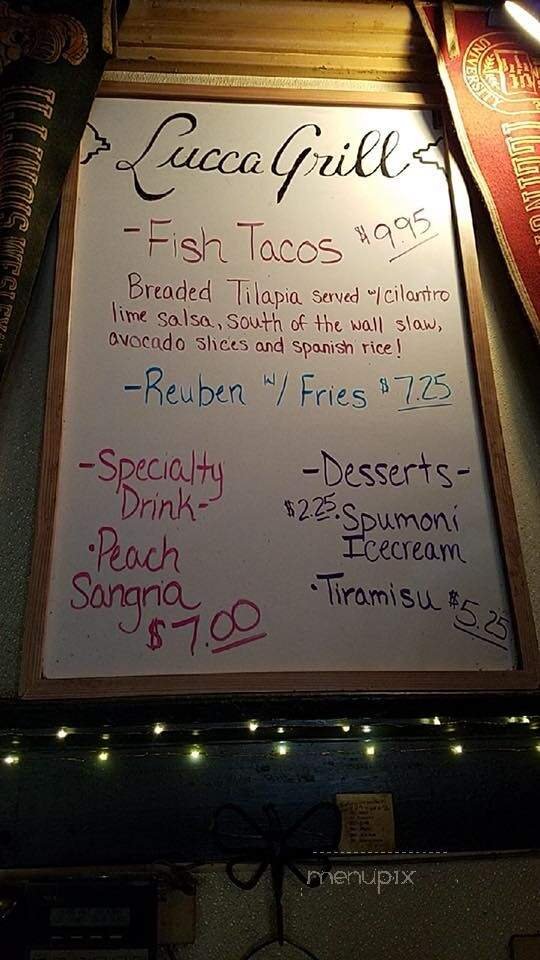 Lucca Grill
-Fish Tacos $9.95
Breaded Tilapia served w/cilantro
lime salsa, south of the wall slaw,
avocado slices and spanish rice!
-Reuben w/ Fries $7.25
-Specialty
Drink-
•Peach
Sangria
$7.00
-Desserts-
$2.25•Spumoni
Icecream
•Tiramisu $5.25
ILLINOIS WESLEY
UNIVERSITY
ILLINO
menupix